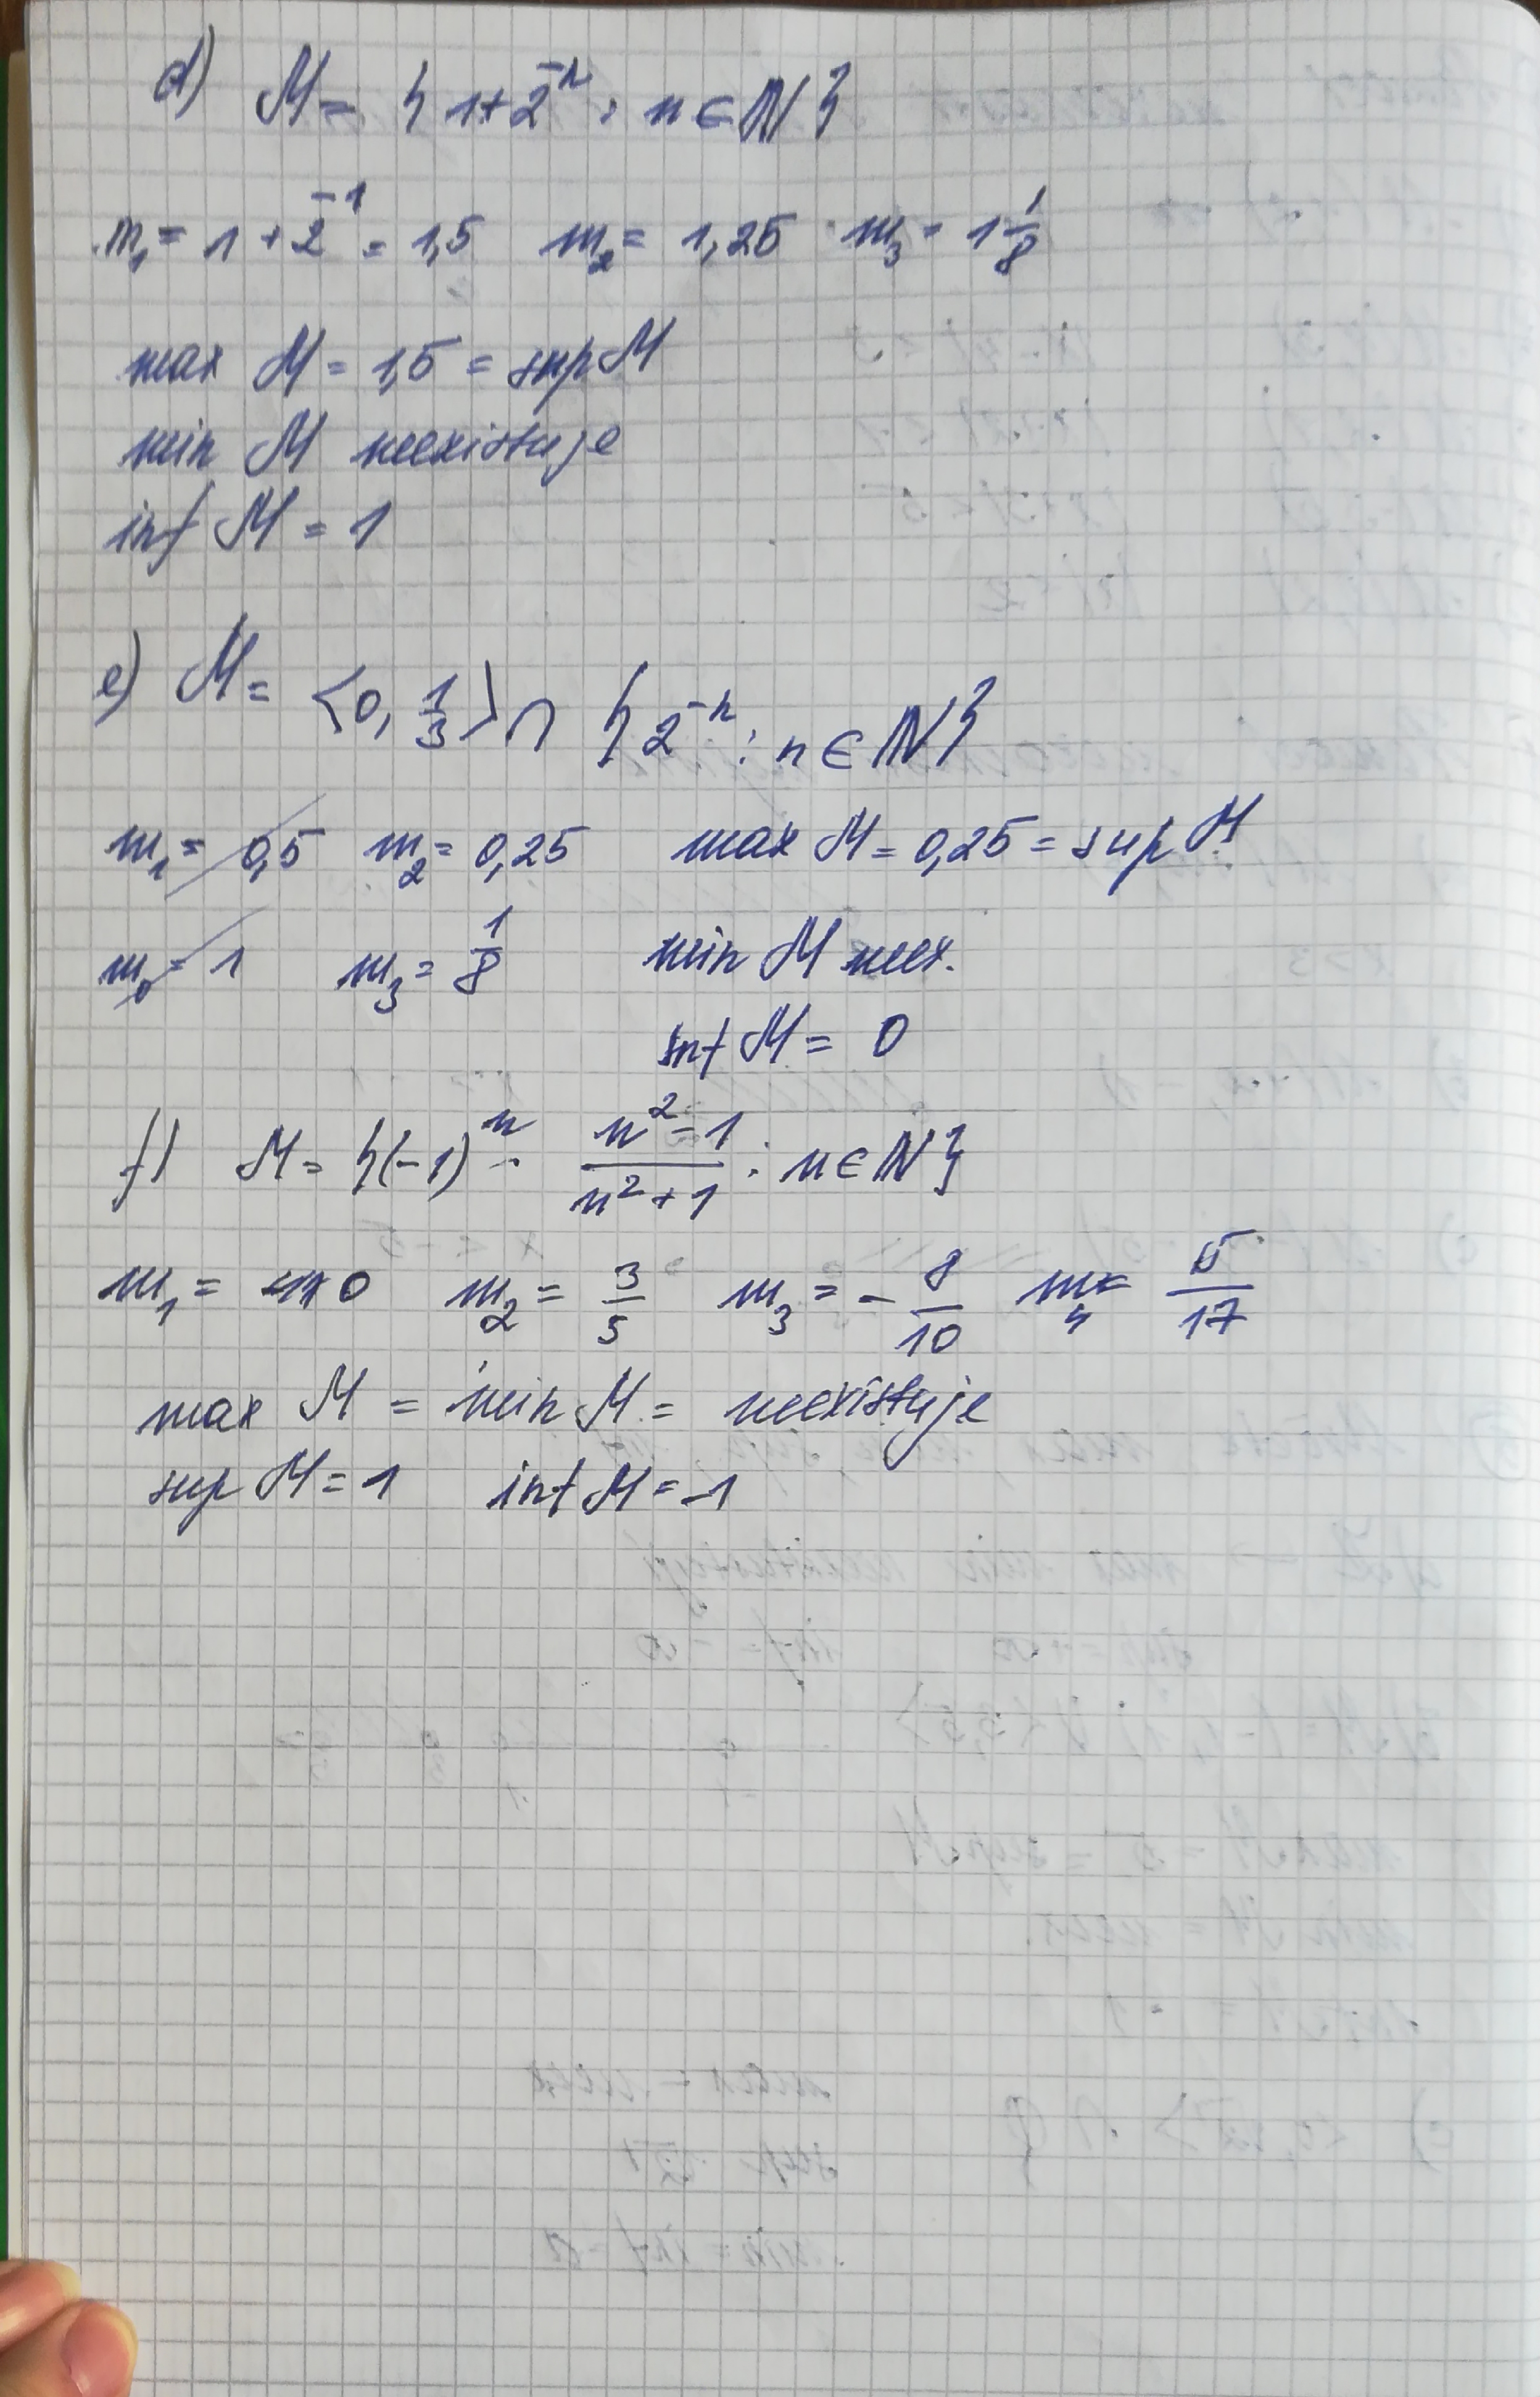 d) M = { 1+2^-n : n ∈ ℕ }
m₁ = 1 + 2^-1 = 1,5 m₂ = 1,25 m₃ = 1 1/8
max M = 1,5 = sup M
min M neexistuje
inf M = 1
e) M = <0, 1/3> ∩ { 2^-n : n ∈ ℕ }
m₁ = 0,5 m₂ = 0,25 max M = 0,25 = sup M
m₀ = 1 m₃ = 1/8 min M neex.
inf M = 0
f) M = { (-1)^n · (n²-1)/(n²+1) : n ∈ ℕ }
m₁ = 0 m₂ = 3/5 m₃ = - 8/10 m₄ = 15/17
max M = min M = neexistuje
sup M = 1 inf M = -1